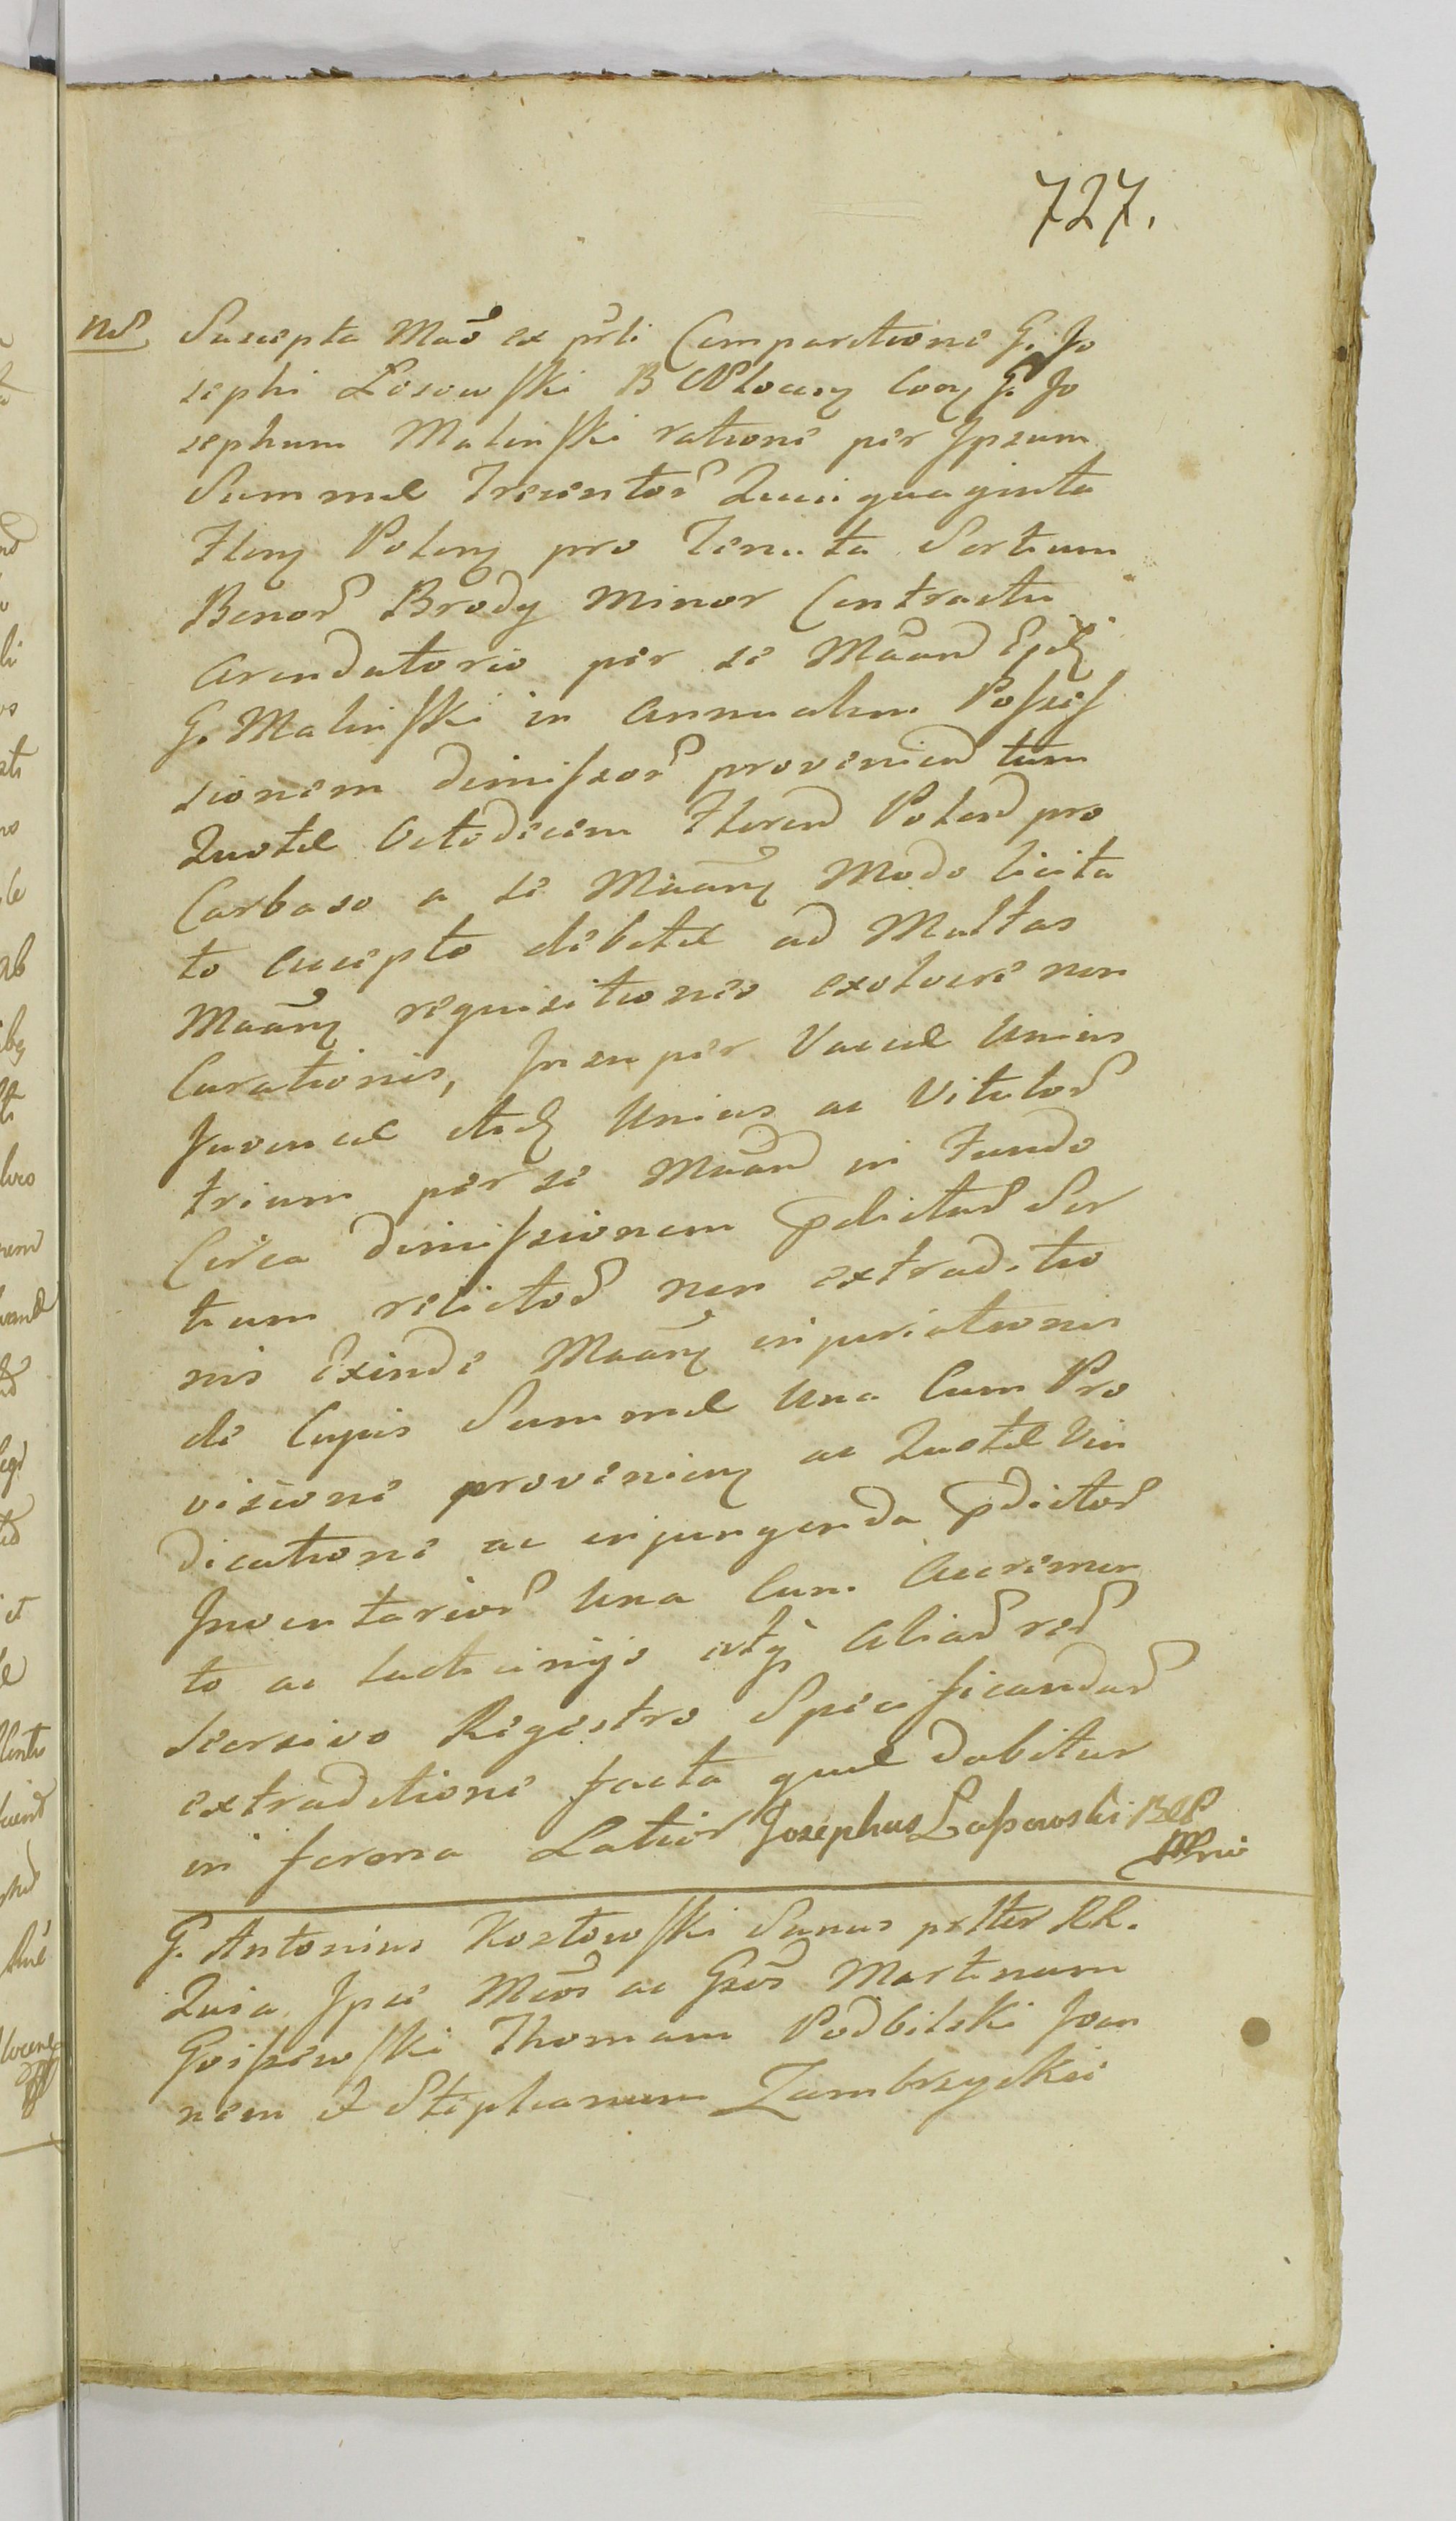 727.
Suscepta Maõ ex prĩti Comparitione G. Jo
sephi Losowski B Plocen con G. Jo
sephum Malinski ratione per Ipsum
Summæ Trecentor Quinquaginta
Flen Polon pro Tenuta Sortium
Bonor Brody Minor Contractu
Arendatorio per se Maand Epdn
G. Malinski in annualem Posses
sionem dimissor proveniend tum
Quotæ Octodecim Floren Polon pro
Carbaso a se Maan Modo licita
to accepto debitæ ad Multas
Maan requisitiones exolvere non
Curationis, Insuper Vaccæ Unius
Juvencæ itid Unius ac Vitulor
trium per se Maand in Fundo
Circa dimissionem pdictar Sor
tium relictor non extraditio
nis Exinde Maan injuriationis
de Cujus Summæ Una Cum Pro
visione provenien ac Quotæ Vin
dicatione ac injungenda pdictor
Inventarior Una Cum Accremen
to ac lacticinijs atq Aliar rer
Seorsivo Regestro Specificandar
extraditione facta quæ dabitur
in forma Latior Josephus Lassowski BCP
mpria
G. Antonius Kozłowski Sanus pnlter RR.
Quia Ipse Mcos ac Gsos Martinum
Goiszewski Thomam Podbilski Joan
nem & Stephanum Zambrzyckie